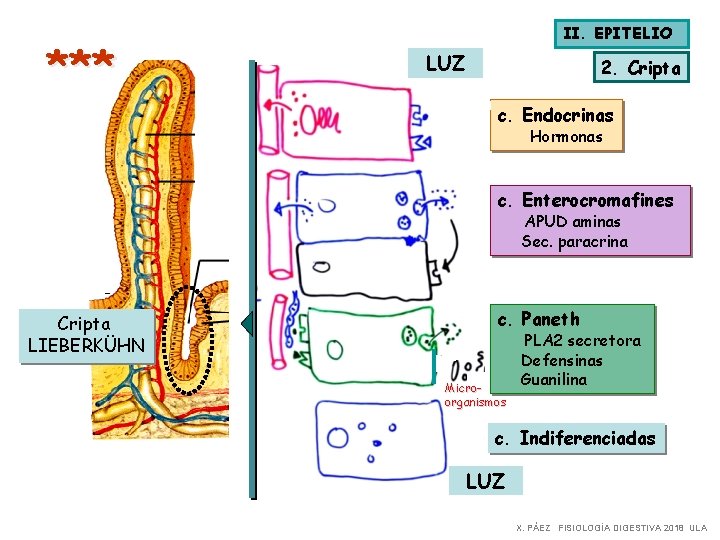 II. EPITELIO
***
LUZ
2. Cripta
c. Endocrinas
Hormonas
c. Enterocromafines
APUD aminas
Sec. paracrina
Cripta
LIEBERKÜHN
c. Paneth
PLA2 secretora
Defensinas
Guanilina
Micro-
organismos
c. Indiferenciadas
LUZ
X. PÁEZ FISIOLOGÍA DIGESTIVA 2018 ULA